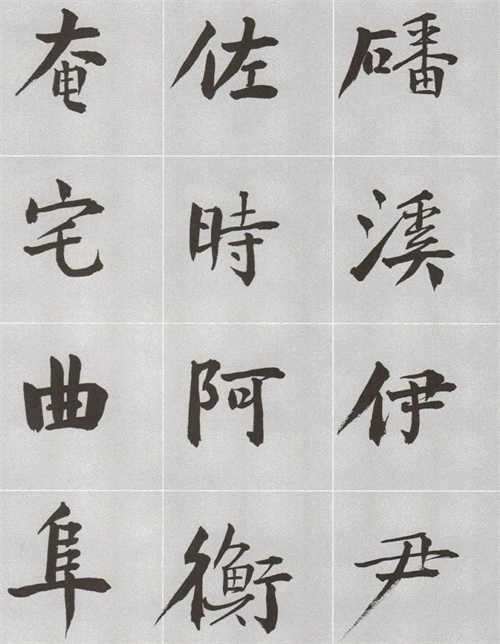 磻溪伊尹
佐時阿衡
奄宅曲阜